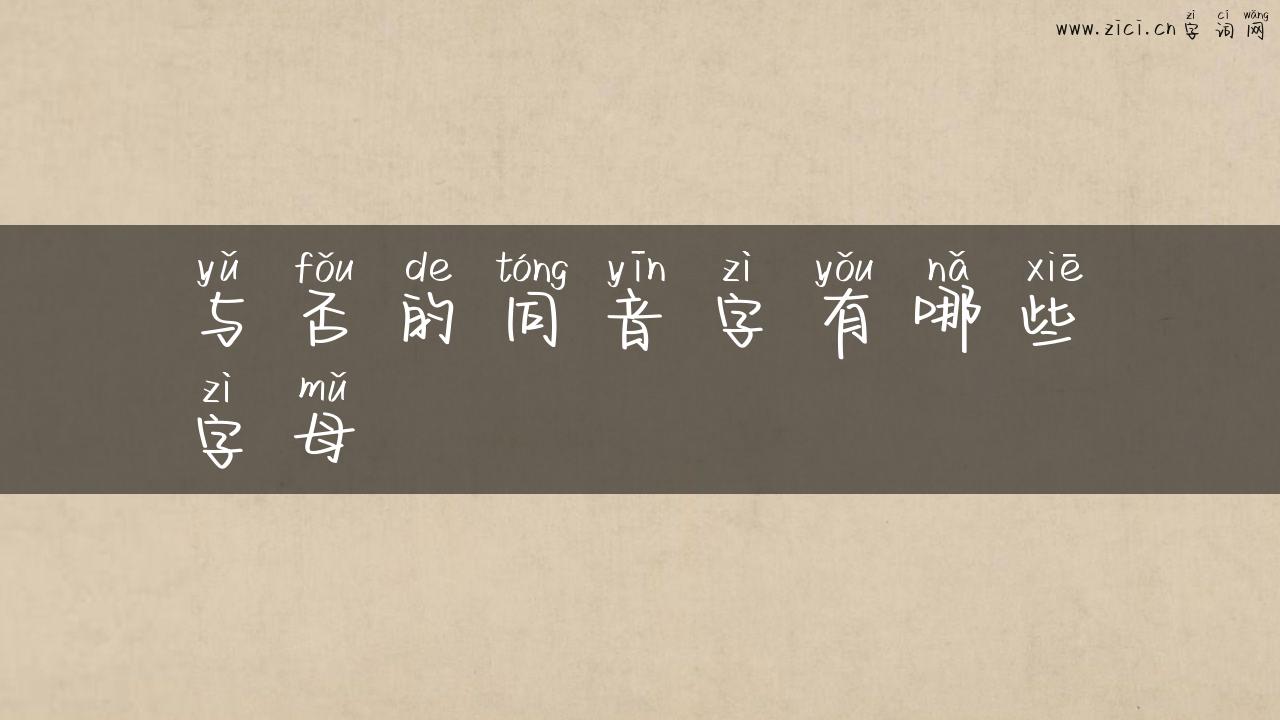 zì cí wǎng
www.zici.cn 字词网
yǔ fǒu de tóng yīn zì yǒu nǎ xiē
与否的同音字有哪些
zì mǔ
字母